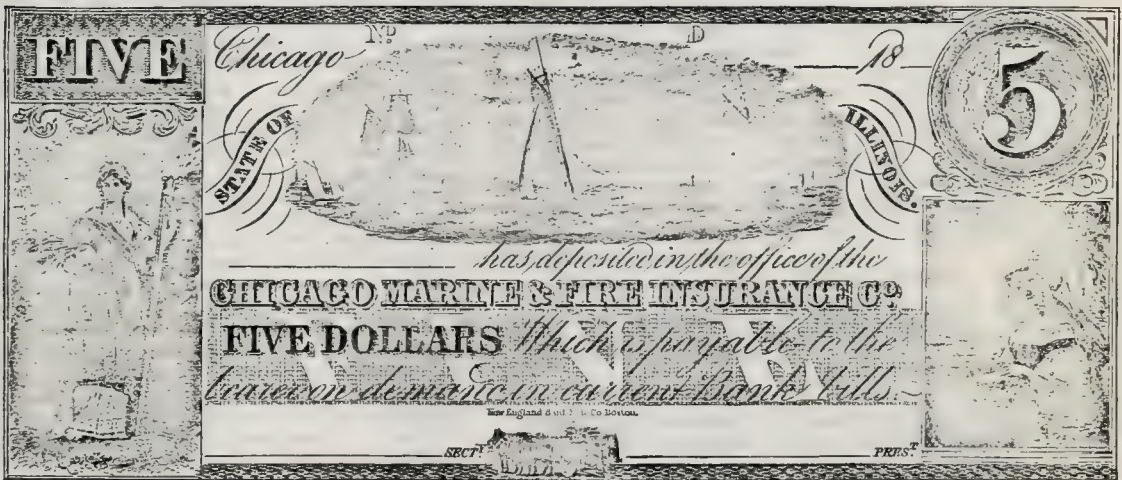 FIVE
Chicago No D 18
5
STATE OF ILLINOIS.
has deposited in the office of the
CHICAGO MARINE & FIRE INSURANCE Co
FIVE DOLLARS Which is payable to the
bearer on demand in current Bank bills.
New England Co Boston.
SECT.Y PRES.T